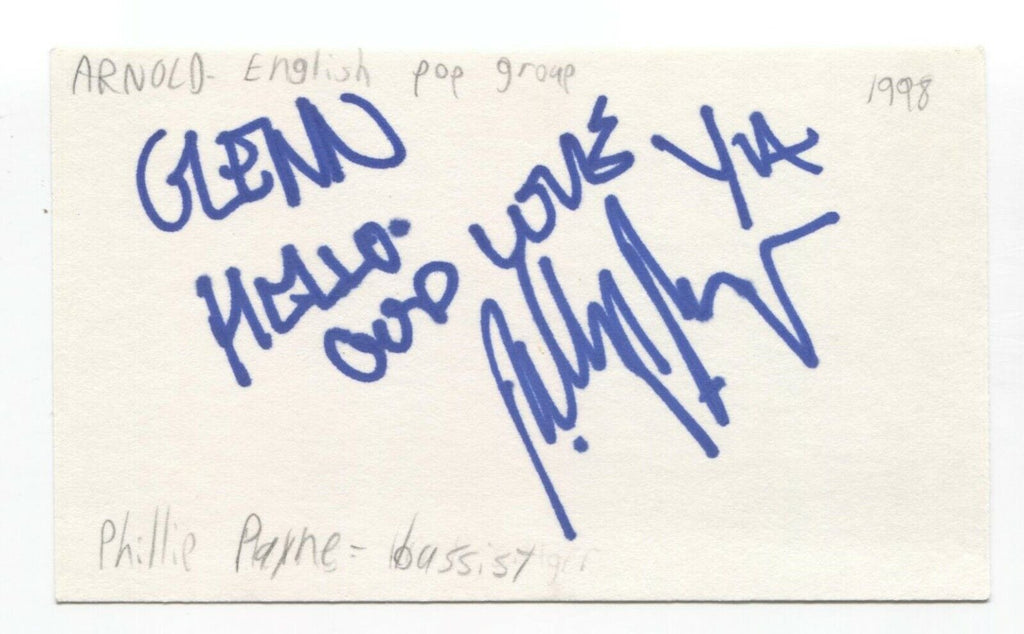 ARNOLD- English pop group
1998
GLENN
HELLO.
LOVE YIA
Phillie Payne = bassist